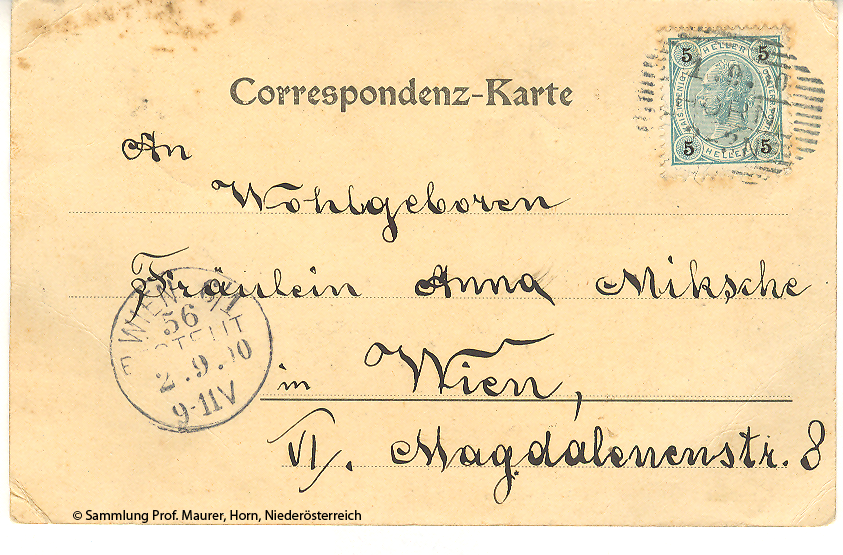 Correspondenz-Karte
5 HELLER 5
5 HELLER 5
An
Wohlgeboren
Fräulein Anna Miksche
WIEN 6/1
56
BESTELLT
2.9.00
9-11V
in Wien,
VI/. Magdalenenstr. 8
© Sammlung Prof. Maurer, Horn, Niederösterreich